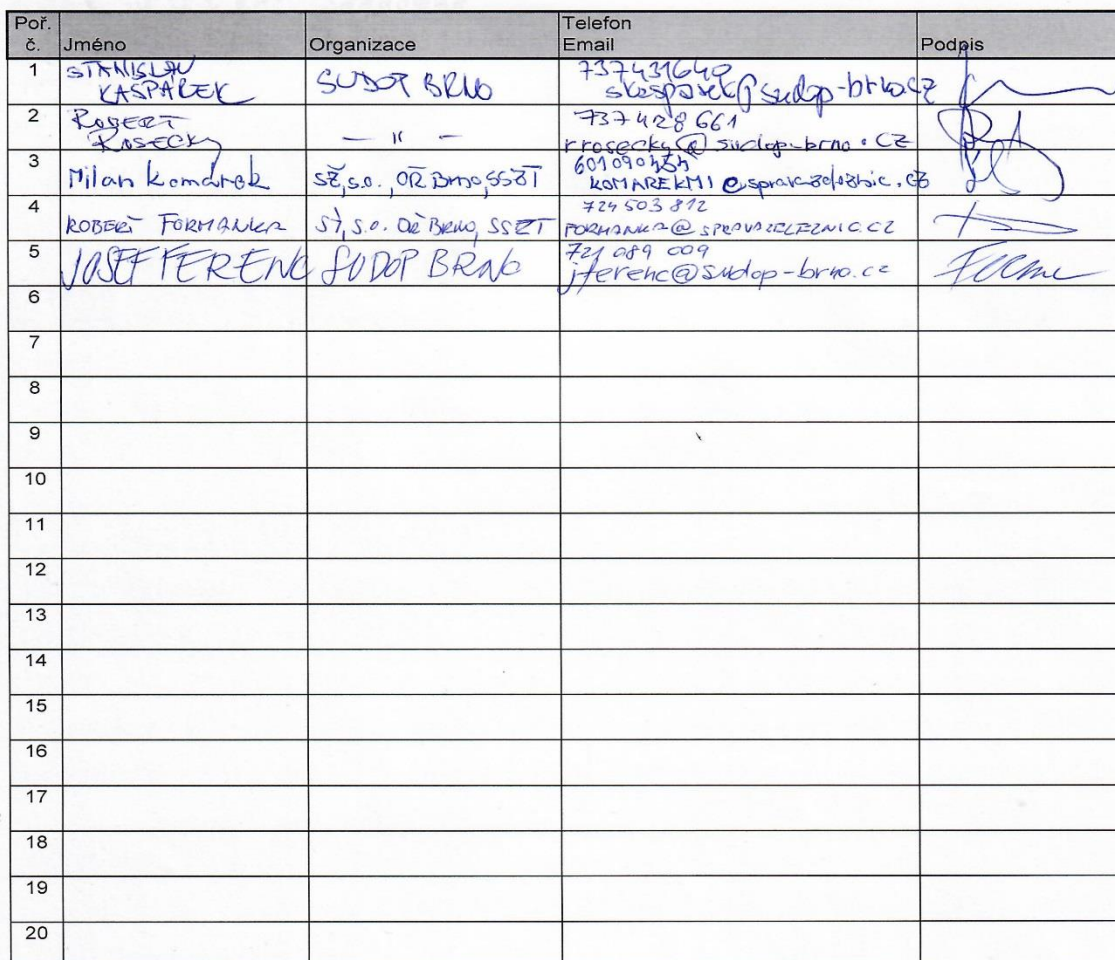 Poř. č. Jméno Organizace Telefon Email Podpis
1 STANISLAV KASPÁREK SUDOP BRNO 737431640 skasparek@sudop-brno.cz
2 ROBERT ROSECKÝ — " — 737 428 661 rrosecky@sudop-brno.cz
3 Milan Komárek SŽ, s.o., OŘ Brno, SSZT KOMAREKMI@spravazeleznic.cz
4 ROBERT FORMANKA SŽ, s.o. OŘ BRNO, SSZT 724 503 812 FORMANKA@SPRAVAZELEZNIC.CZ
5 JOSEF FERENC SUDOP BRNO 721 089 009 jferenc@sudop-brno.cz
6
7
8
9
10
11
12
13
14
15
16
17
18
19
20